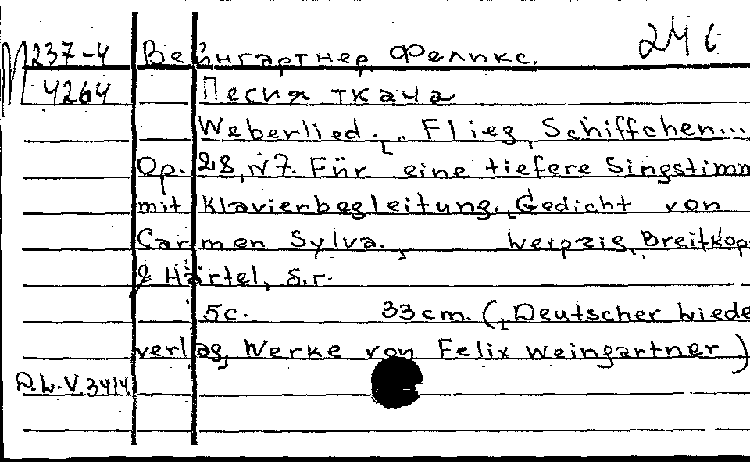 М 237-4 Вейнгартнер Феликс. 24 с
4264 Песня ткача
Weberlied. "Flieg, Schiffchen...
Op. 28, N7. Für eine tiefere Singstimm
mit Klavierbegleitung. Gedicht von
Carmen Sylva. Leipzig, Breitkop
& Härtel, s.r.
5c. 33cm. (Deutscher Liede
verlag, Werke von Felix Weingartner)
D.L.V. 3414